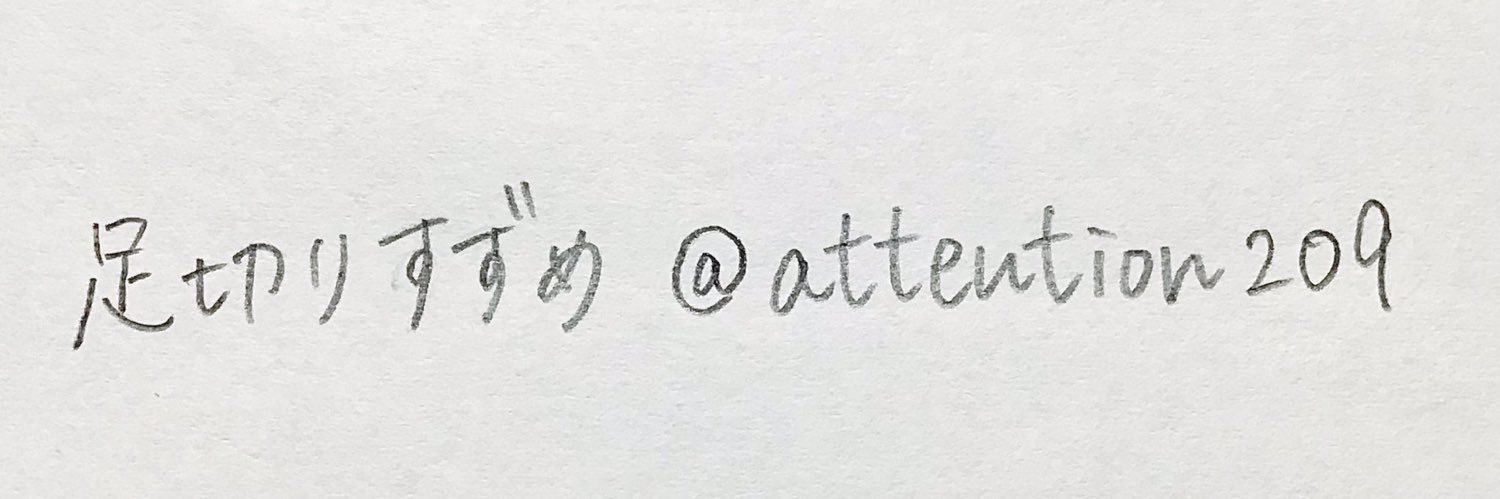 足切りすずめ @attention209